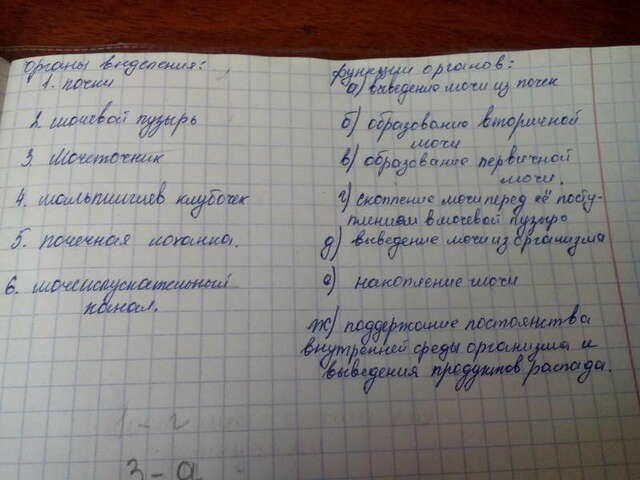 Органы выделения:
1. почки
2. мочевой пузырь
3. Мочеточник
4. мальпигиев клубочек
5. почечная лоханка.
6. мочеиспускательный
канал.
функции органов:
а) выведение мочи из почек
б) образование вторичной
мочи
в) образование первичной
мочи.
г) скопление мочи перед её посту-
плением в мочевой пузырь
д) выведение мочи из организма
е) накопление мочи
ж) поддержание постоянства
внутренней среды организма и
выведения продуктов распада.
1 - г
3 - а